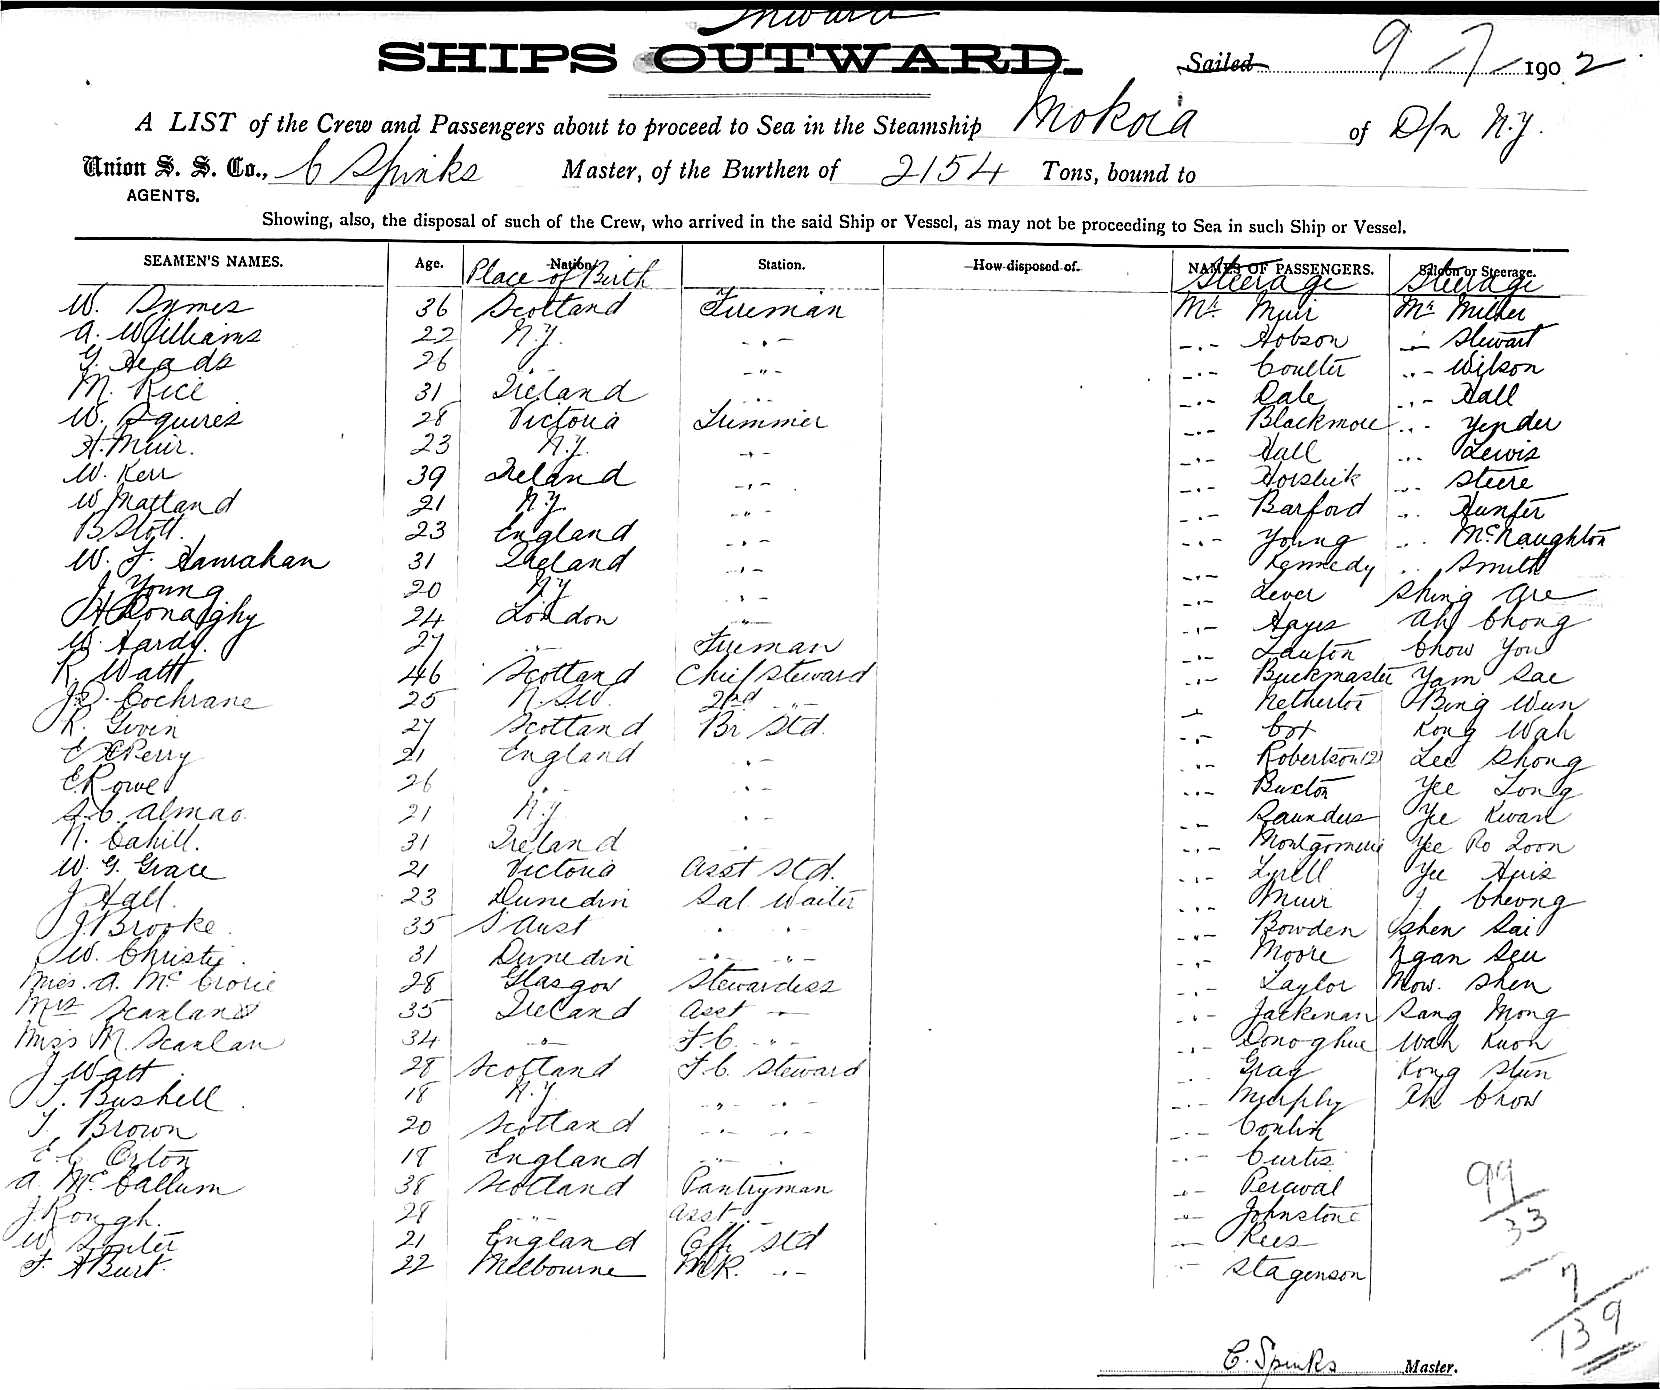 Inward
SHIPS OUTWARD. Sailed 9/7/1902
A LIST of the Crew and Passengers about to proceed to Sea in the Steamship Mokoia of D/n N.Z.
Union S. S. Co., C Spinks Master, of the Burthen of 2154 Tons, bound to
AGENTS.
Showing, also, the disposal of such of the Crew, who arrived in the said Ship or Vessel, as may not be proceeding to Sea in such Ship or Vessel.
SEAMEN'S NAMES. Age. Nation. Station. How disposed of. NAMES OF PASSENGERS. Saloon or Steerage.
Place of Birth Steerage Steerage
W. Symes 36 Scotland Fireman Mr. Muir Mr Miller
A. Williams 22 N.Z. -.- -.- Hobson -.- Stewart
G. Heads 26 .. -..- -.- Coulter ..- Wilson
M. Rice 31 Ireland .. -.- Dale ..- Hall
W. Squires 28 Victoria Trimmer -.- Blackmore ... Yender
H. Muir. 23 N.Z. -.- -.- Hall ... Lewis
W. Kerr 39 Ireland -.- -.- ... Steere
W Maitland 21 N.Z. -..- -.- Barford .. Hunter
B Stott. 23 England -.- -.- Young .. McNaughton
W. F. Hanrahan 31 Ireland -.- -.- Kennedy .. Smith
J Young 20 N.Z. -.- -.- Lever Shing Gee
H Conaghy 24 London -..- -.- Hayes Ah Chong
W. Hardy. 27 -..- Fireman -.- Chow You
R. Watt 46 Scotland Chief Steward -.- Buckmaster Yam Sae
J.D. Cochrane 25 N.S.W. 2nd -..- - Netherton Bing Wun
R. Givin 27 Scotland Br Std. -.- Cox Kong Wah
E Perry 21 England -.- -.- Robertson (2) Lee Shong
E Rowe 26 .. -.- -.- Buxton Yee Tong
S.C. Almao. 21 N.Z. -.- -.- Saunders Yee Kwan
N. Cahill. 31 Ireland . - -.- Montgomerie Yee Po Loon
W. G. Grace 21 Victoria Asst Std. -.- Lyell Yee
J Hall. 23 Dunedin Sal. Waiter -.- Muir J Cheong
J. Brooke. 35 S Aust . . . . -.- Bowden Shen Sai
W. Christie. 31 Dunedin -.- -..- -.- Moore Ngan Seu
Miss. A. Mc Crorie 28 Glasgow Stewardess -.- Taylor Mow. Shen
Mrs Scanland 35 Ireland Asst -..- -.- Jackman Sang Mong
Miss M. Scanlan 34 -..- F.C. -..- -.- Donoghue Wah Kuon
J Watt. 28 Scotland F.C. Steward . . Gray Kong Stun
T. Bushell. 18 N.Z. -..- -.- -.- Murphy Ah Chow
T. Brown 20 Scotland -.- -..- -.- Conlin
E C Orton 19 England -..- . -.- Curtis
A. Mc Callum 38 Scotland Pantryman -..- Percival 99
J. Rough. 28 -..- Asst. .. -..- Johnstone 33
W Salter 21 England Offr Std -..- Rees
F. A Burt. 22 Melbourne M.R. -.- -..- Stagenson 7
139
C. Spinks Master.